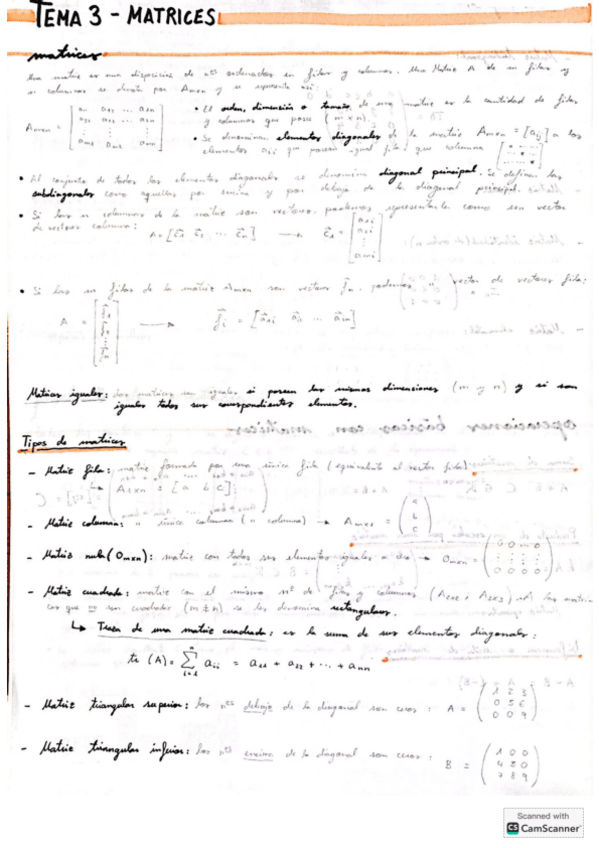 TEMA 3 - MATRICES
matrices
Una matriz es una disposición de nºs ordenados en filas y columnas. Una Matriz A de m filas y
n columnas se denota por Amxn y se representa así:
• El orden, dimensión o tamaño de una matriz es la cantidad de filas
y columnas que posee (m x n)
• Se denominan elementos diagonales de la matriz Amxn = [aij] a los
elementos aii que poseen igual fila y que columna
Amxn =
• Al conjunto de todos los elementos diagonales se denomina diagonal principal. Se definen las
subdiagonales como aquellas por encima y por debajo de la diagonal principal.
• Si las n columnas de la matriz son vectores, podemos representarla como un vector
de vectores columna:
• Si las m filas de la matriz Amxn son vectores podemos " vector de vectores fila:
A =
Matrices iguales: dos matrices son iguales si poseen las mismas dimensiones (m y n) y si son
iguales todos sus correspondientes elementos.
Tipos de matrices
- Matriz fila: matriz formada por una única fila (equivalente al vector fila)
↳ A1xn = [a b c]
- Matriz columna: " única columna (" columna) → Amx1 = (a b c)
- Matriz nula (Omxn): matriz con todos sus elementos iguales a 0 → Omxn =
- Matriz cuadrada: matriz con el mismo nº de filas y columnas (A2x2, A3x3...) A las matri-
ces que no son cuadradas (m ≠ n) se les denomina rectangulares.
↳ Traza de una matriz cuadrada: es la suma de sus elementos diagonales:
tr (A) = Σ aii = a11 + a22 + ... + ann
- Matriz triangular superior: los nºs debajo de la diagonal son ceros: A = (1 2 3
0 5 6
0 0 9)
- Matriz triangular inferior: los nºs encima de la diagonal son ceros: B = (1 0 0
4 5 0
7 8 9)
Scanned with
CS CamScanner